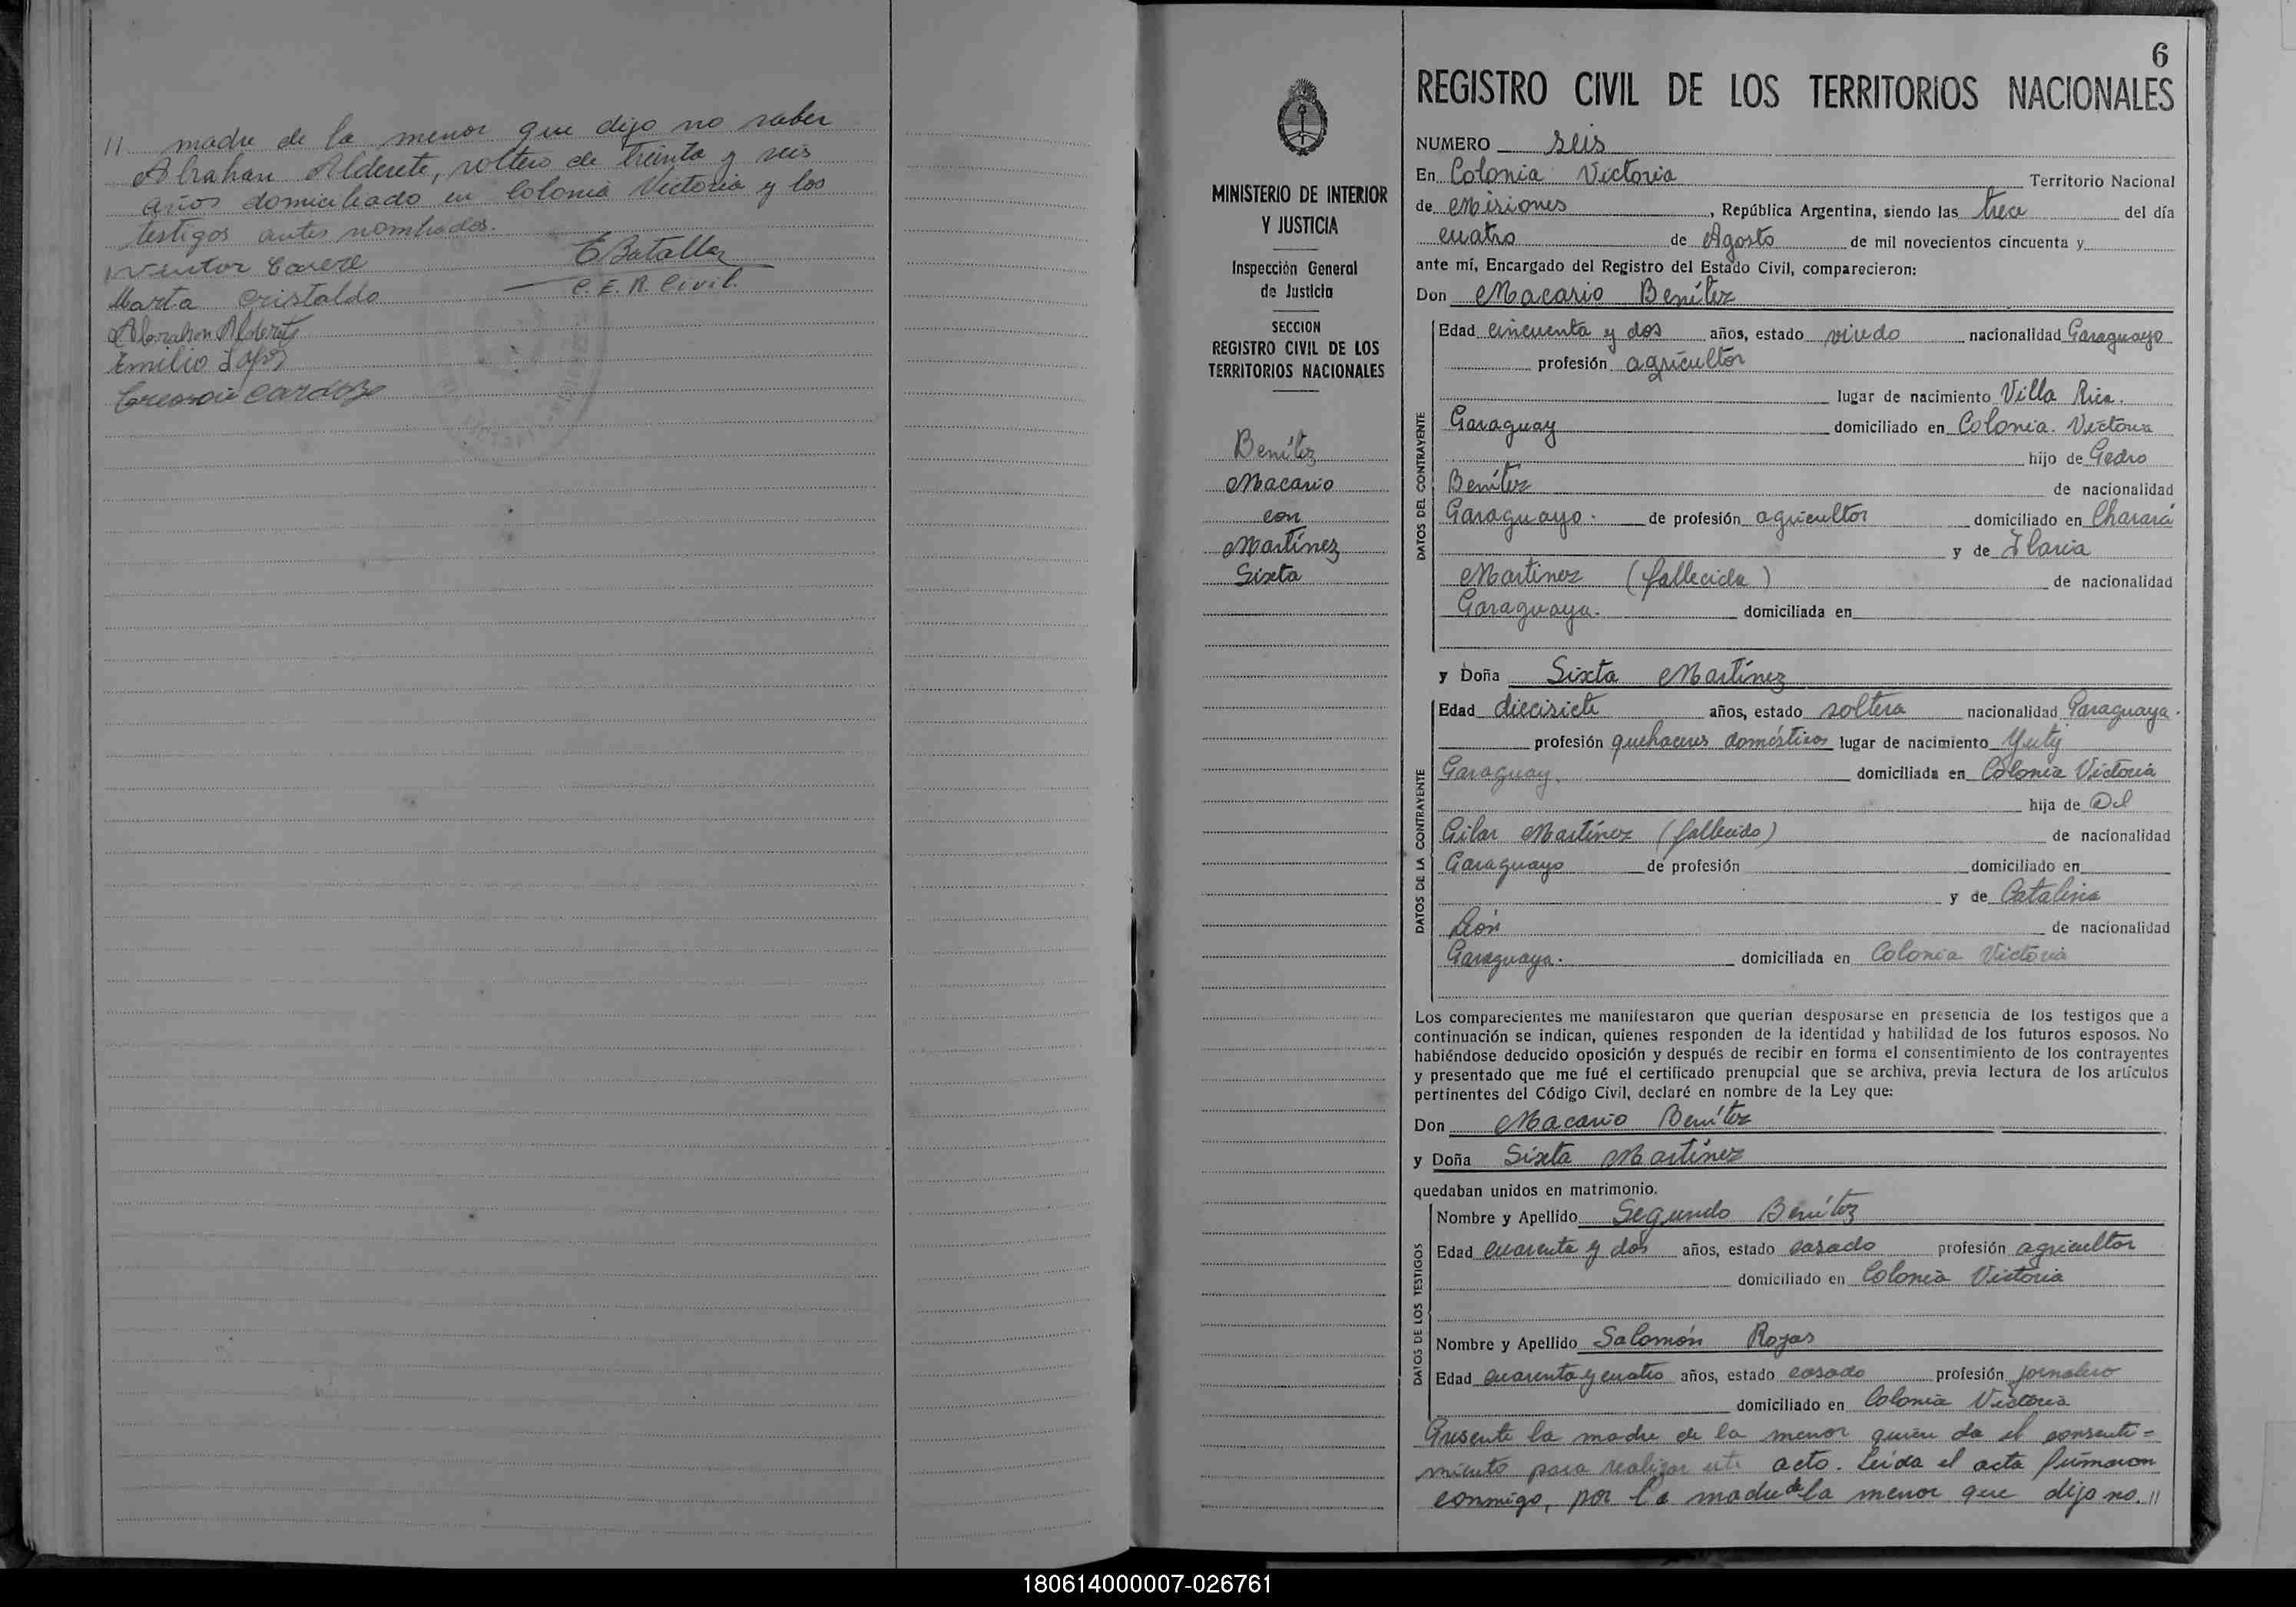 11 madre de la menor que dijo no saber
Abrahan Alderete, soltero de treinta y seis
años domiciliado en Colonia Victoria y los
testigos antes nombrados.
E Batalla
C. E. R. Civil.
Marta Cristaldo
Abrahan Alderete
Emilio
Cardozo
6
REGISTRO CIVIL DE LOS TERRITORIOS NACIONALES
MINISTERIO DE INTERIOR
Y JUSTICIA
Inspección General
de Justicia
SECCION
REGISTRO CIVIL DE LOS
TERRITORIOS NACIONALES
Benítez
Macario
con
Martínez
Sixta
NUMERO seis
En Colonia Victoria Territorio Nacional
de Misiones, República Argentina, siendo las trece del día
cuatro de Agosto de mil novecientos cincuenta y
ante mí, Encargado del Registro del Estado Civil, comparecieron:
Don Macario Benítez
DATOS DEL CONTRAYENTE
Edad cincuenta y dos años, estado viudo nacionalidad Paraguayo
profesión agricultor
lugar de nacimiento Villa Rica.
Paraguay domiciliado en Colonia Victoria
hijo de Pedro
Benítez de nacionalidad
Paraguayo. de profesión agricultor domiciliado en Charará
y de Ilaria
Martinez (fallecida) de nacionalidad
Paraguaya. domiciliada en
y Doña Sixta Martínez
DATOS DE LA CONTRAYENTE
Edad diecisiete años, estado soltera nacionalidad Paraguaya.
profesión quehaceres domésticos lugar de nacimiento Yuty
Paraguay. domiciliada en Colonia Victoria
hija de Del
Pilar Martínez (fallecido) de nacionalidad
Paraguayo de profesión domiciliado en
y de Catalina
León de nacionalidad
Paraguaya. domiciliada en Colonia Victoria
Los comparecientes me manifestaron que querían desposarse en presencia de los testigos que a
continuación se indican, quienes responden de la identidad y habilidad de los futuros esposos. No
habiéndose deducido oposición y después de recibir en forma el consentimiento de los contrayentes
y presentado que me fué el certificado prenupcial que se archiva, previa lectura de los artículos
pertinentes del Código Civil, declaré en nombre de la Ley que:
Don Macario Benítez
y Doña Sixta Martínez
quedaban unidos en matrimonio.
DATOS DE LOS TESTIGOS
Nombre y Apellido Segundo Benítez
Edad cuarenta y dos años, estado casado profesión agricultor
domiciliado en Colonia Victoria
Nombre y Apellido Salomón Rojas
Edad cuarenta y cuatro años, estado casado profesión jornalero
domiciliado en Colonia Victoria
Presente la madre de la menor quien da el consenti=
miento para realizar este acto. Leída el acta firmaron
conmigo, por la madre de la menor que dijo no. 11
180614000007-026761